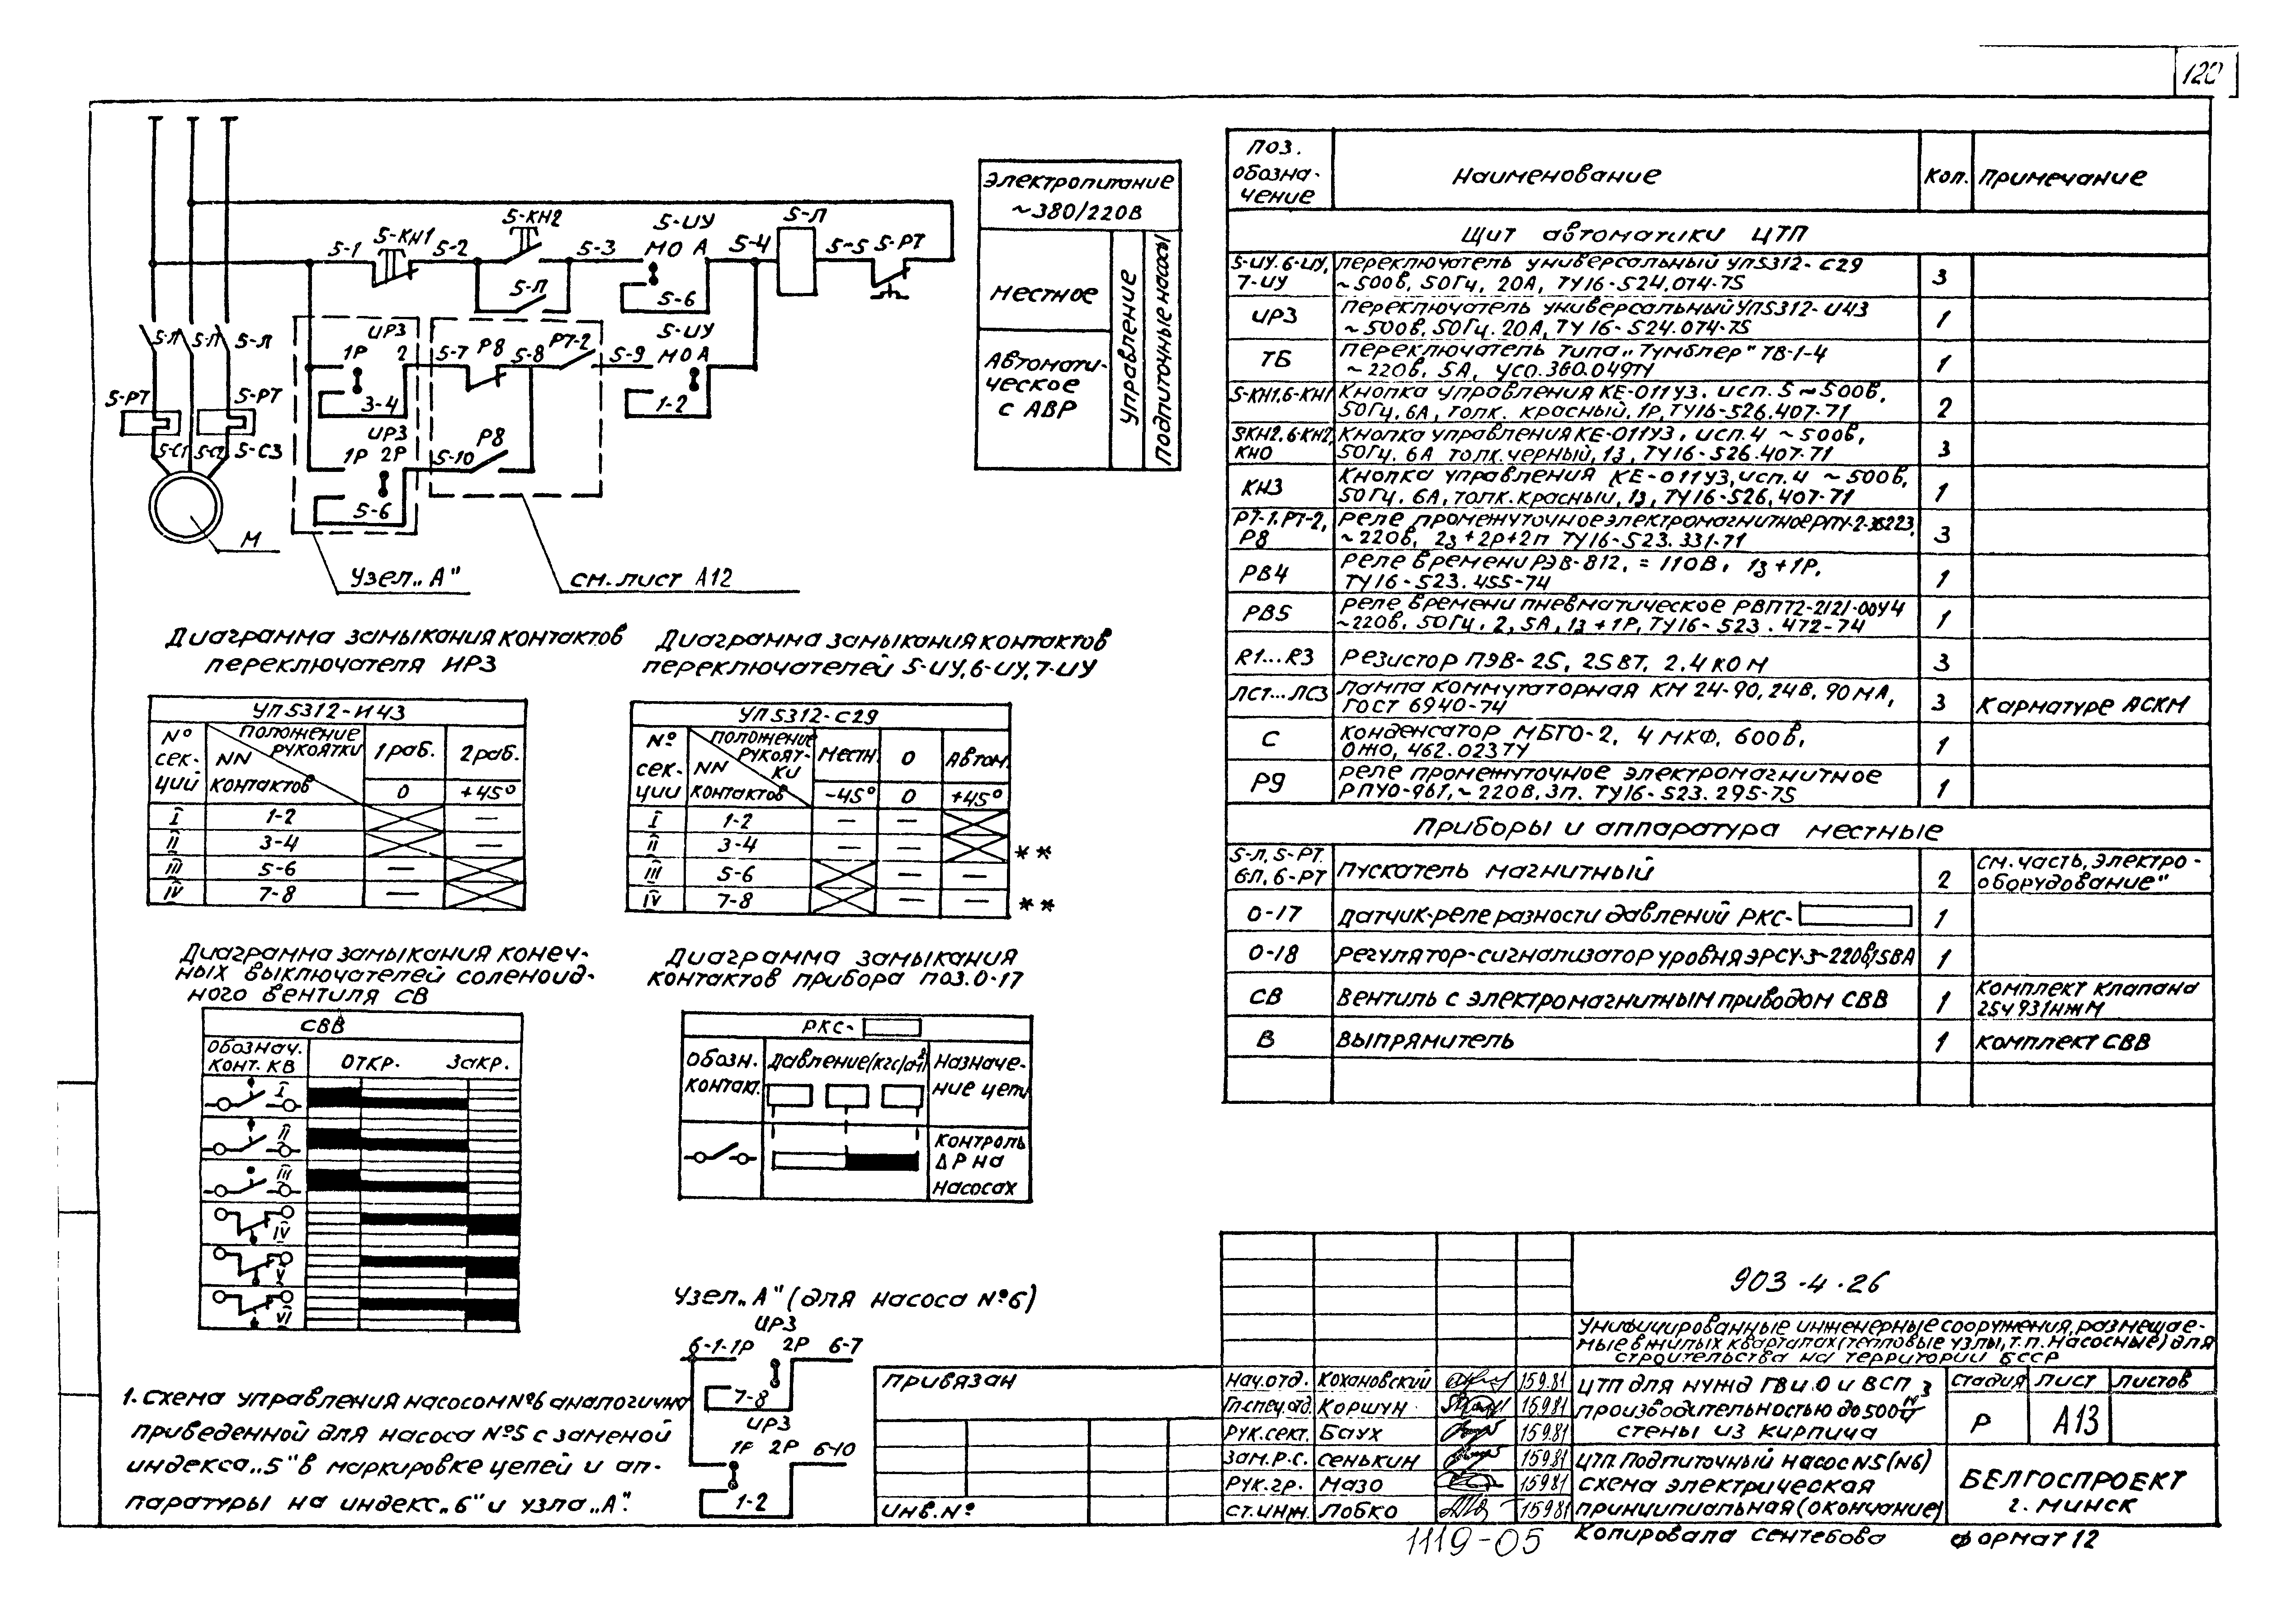 120
5-1
5-КН1
5-2
5-КН2
5-3
5-ИУ
МО А
5-4
5-Л
5-5
5-РТ
5-Л
5-6
Электропитание
~380/220В
Местное
Автомати-
ческое
с АВР
Управление
Подпиточные насосы
5-Л
5-Л
5-Л
5-РТ
5-РТ
5-С1
5-С2
5-С3
М
ИР3
1Р 2
3-4
5-7
Р8
5-8
Р7-2
5-9
5-ИУ
МО А
1-2
ИР3
1Р 2Р
5-6
5-10
Р8
Узел „А"
см. лист А12
Диаграмма замыкания контактов
переключателя ИР3
УП5312-И43
№
сек-
ций
Положение
рукоятки
NN
контактов
1 раб.
2 раб.
0
+45°
I 1-2 —
II 3-4 —
III 5-6 —
IV 7-8 —
Диаграмма замыкания контактов
переключателей 5-ИУ, 6-ИУ, 7-ИУ
УП5312-С29
№
сек-
ции
Положение
рукоят-
ки
NN
контактов
Местн.
0
Автом.
-45°
0
+45°
I 1-2 — —
II 3-4 — — **
III 5-6 — —
IV 7-8 — — **
Диаграмма замыкания конеч-
ных выключателей соленоид-
ного вентиля СВ
СВВ
Обознач.
конт. КВ
откр.
закр.
I
II
III
IV
V
VI
Диаграмма замыкания
контактов прибора поз. 0-17
РКС-
Обозн.
контак.
Давление (кгс/см²)
Назначе-
ние цепи
Контроль
ΔР на
насосах
Узел „А" (для насоса №6)
ИР3
6-1-1Р 2Р 6-7
7-8
ИР3
1Р 2Р 6-10
1-2
1. Схема управления насосом №6 аналогично
приведенной для насоса №5 с заменой
индекса „5" в маркировке цепей и ап-
паратуры на индекс „6" и узла „А".
Поз.
обозна-
чение
Наименование
Кол.
Примечание
Щит автоматики ЦТП
5-ИУ, 6-ИУ,
7-ИУ
Переключатель универсальный УП5312-С29
~500В, 50Гц, 20А, ТУ16-524.074-75
3
ИР3
Переключатель универсальный УП5312-И43
~500В, 50Гц. 20А, ТУ16-524.074-75
1
ТБ
Переключатель типа „Тумблер" ТВ-1-4
~220В, 5А, УСО.360.049ТУ
1
5-КН1, 6-КН1
Кнопка управления КЕ-011У3, исп. 5 ~500В,
50Гц, 6А, толк. красный, 1Р, ТУ16-526.407-71
2
5КН2, 6-КН2,
КНО
Кнопка управления КЕ-011У3, исп. 4 ~500В,
50Гц. 6А толк. черный, 1з, ТУ16-526.407-71
3
КН3
Кнопка управления КЕ-011У3, исп. 4 ~500В,
50Гц. 6А, толк. красный, 1з, ТУ16-526.407-71
1
Р7-1, Р7-2,
Р8
Реле промежуточное электромагнитное РПУ-2-36223,
~220В, 2з+2Р+2п ТУ16-523.331-71
3
РВ4
Реле времени РЭВ-812, =110В, 1з+1Р,
ТУ16-523.455-74
1
РВ5
Реле времени пневматическое РВП72-2121-00У4
~220В, 50Гц, 2,5А, 1з+1Р, ТУ16-523.472-74
1
R1...R3
Резистор ПЭВ-25, 25ВТ, 2.4 КОМ
3
ЛС1...ЛС3
Лампа коммутаторная КМ 24-90, 24В, 90МА,
ГОСТ 6940-74
3
К арматуре АСКМ
С
Конденсатор МБГО-2, 4 МКФ, 600В,
ОЖО, 462.023ТУ
1
Р9
Реле промежуточное электромагнитное
РПУ0-961, ~220В, 3п. ТУ16-523.295-75
1
Приборы и аппаратура местные
5-Л, 5-РТ
6Л, 6-РТ
Пускатель магнитный
2
См. часть „Электро-
оборудование"
0-17
Датчик-реле разности давлений РКС-
1
0-18
Регулятор-сигнализатор уровня ЭРСУ-3~220В, 15ВА
1
СВ
Вентиль с электромагнитным приводом СВВ
1
Комплект клапана
25ч931нжМ
В
Выпрямитель
1
Комплект СВВ
903-4-26
Унифицированные инженерные сооружения, размещае-
мые в жилых кварталах (тепловые узлы, т.п. насосные) для
строительства на территории БССР
Привязан
Инв. №
Нач. отд. Кохановский 15.9.81
Гл. спец. отд. Коршун 15.9.81
Рук. сект. Баух 15.9.81
Зам. Р.С. Сенькин 15.9.81
Рук. гр. Мазо 15.9.81
Ст. инж. Лобко 15.9.81
ЦТП для нужд ГВ и О и ВСП
производительностью до 500 м³/ч
стены из кирпича
Стадия Лист Листов
Р А13
ЦТП. Подпиточный насос N5 (N6)
Схема электрическая
принципиальная (окончание)
БЕЛГОСПРОЕКТ
г. Минск
1119-05
Копировала Сентебова
Формат 12